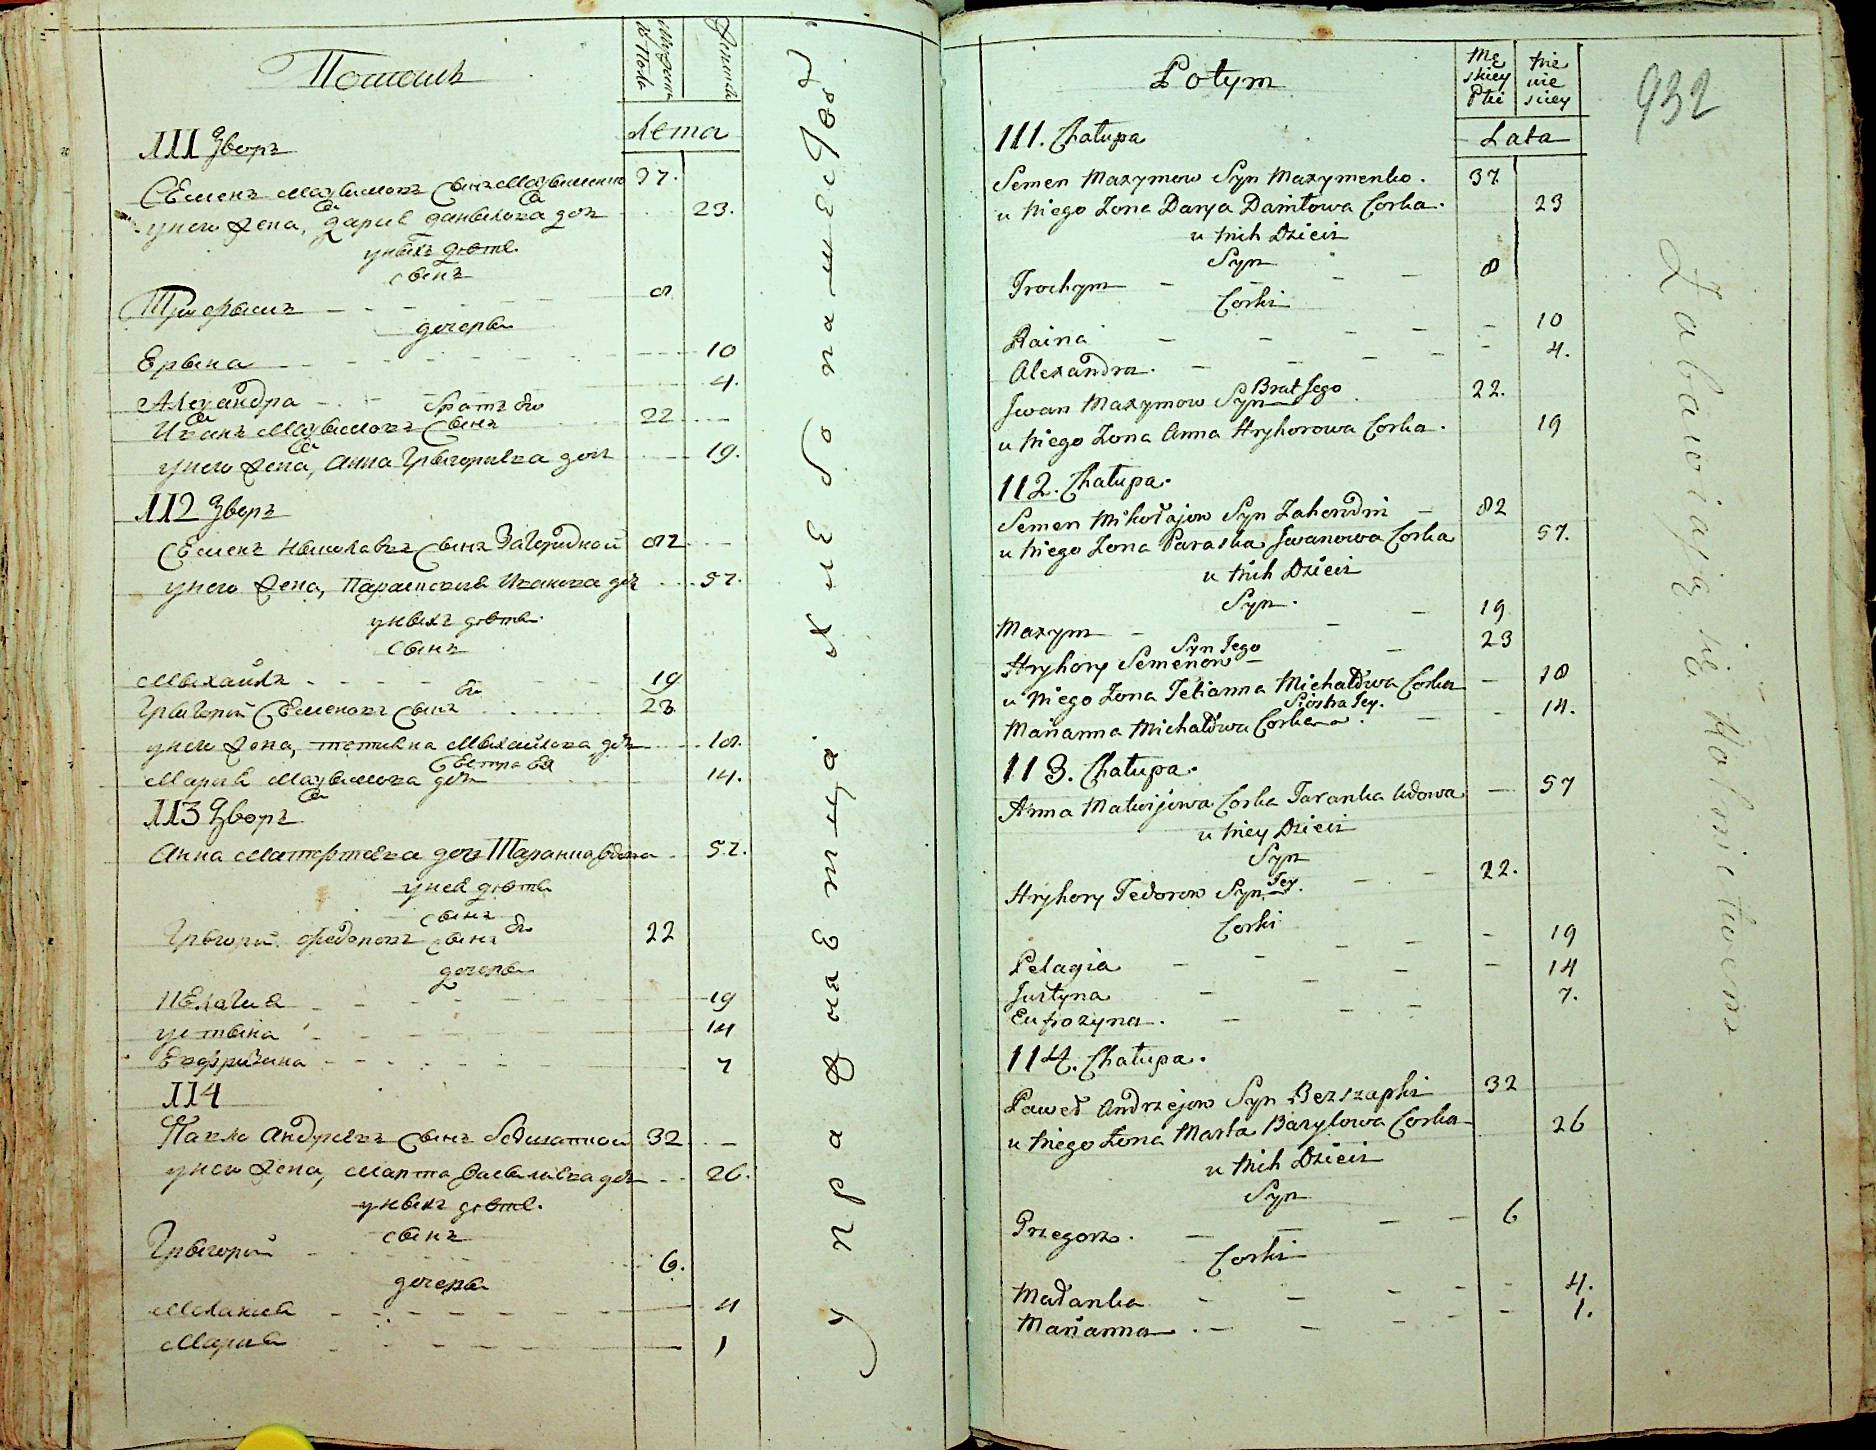 Потомъ
мужеска пола
женска
Лета
111 Дворъ
Семенъ Мазымовъ сынъ Мазыменко 37.
унего жена, Дария Данылова доч 23.
уныхъ дѣте
сынъ
Трофымъ 8
дочеры
Ерына 10
Александра 4.
братъ его
Иванъ Мазымовъ сынъ 22
унего жена, Анна Грыгориева доч 19.
112 Дворъ
Семенъ Николаевъ сынъ Загородной 82
унего жена, Параскева Иванова доч 57.
уныхъ дѣты
сынъ
Мыхайлъ 19
Грыгорий Семеновъ сынъ его 23
унего жена, Тетияна Мыхайлова доч 18.
сестра ея
Мария доч 14.
113 Дворъ
Анна Матфеева доч Таранка вдова 57.
унея дѣты
сынъ
Грыгорий Федоровъ сынъ его 22
дочеры
Пелагия 19
Устына 14
Ефросина 7
114
Павло Андреевъ сынъ 32
унего жена, Марта Васылиева доч 26.
уныхъ дѣте.
сынъ
Грыгорий 6.
дочеры
Мелания 4
Мария 1
управляетца хлебопашествомъ
Potym
Męskiey Płci
Żenieskiey
Lata
932
111. Chałupa
Semen Maxymow Syn Maxymenko. 37
u Niego Żona Darya Daniłowa Corka. 23
u Nich Dzieci
Syn
Trochym 8
Corki
Raina 10
Alexandra. 4.
Brat Jego
Jwan Maxymow Syn 22.
u Niego Żona Anna Hryhorowa Corka. 19
112. Chałupa.
Semen Mikołajow Syn Zahorodni 82
u Niego Żona Paraska Jwanowa Corka 57.
u Nich Dzieci
Syn.
Maxym 19
Syn Jego
Hryhory Semenow 23
u Niego Żona Tetianna Michałowa Corka 18
Siostra Jey.
Marianna Michałowa Corka 14.
113. Chałupa.
Anna Matwijowa Corka Taranka Wdowa 57
u Niey Dzieci
Syn
Hryhory Fedorow Syn Jey. 22.
Corki
Pelagia 19
Justyna 14
Eufrozyna. 7.
114. Chałupa.
Paweł Andrzejow Syn Bezszapki 32
u Niego Żona Marta Bazylowa Corka 26
u Nich Dzieci
Syn
Grzegorz. 6
Corki
Małanka 4.
Marianna. 1.
Zabawiają się Rolnictwem